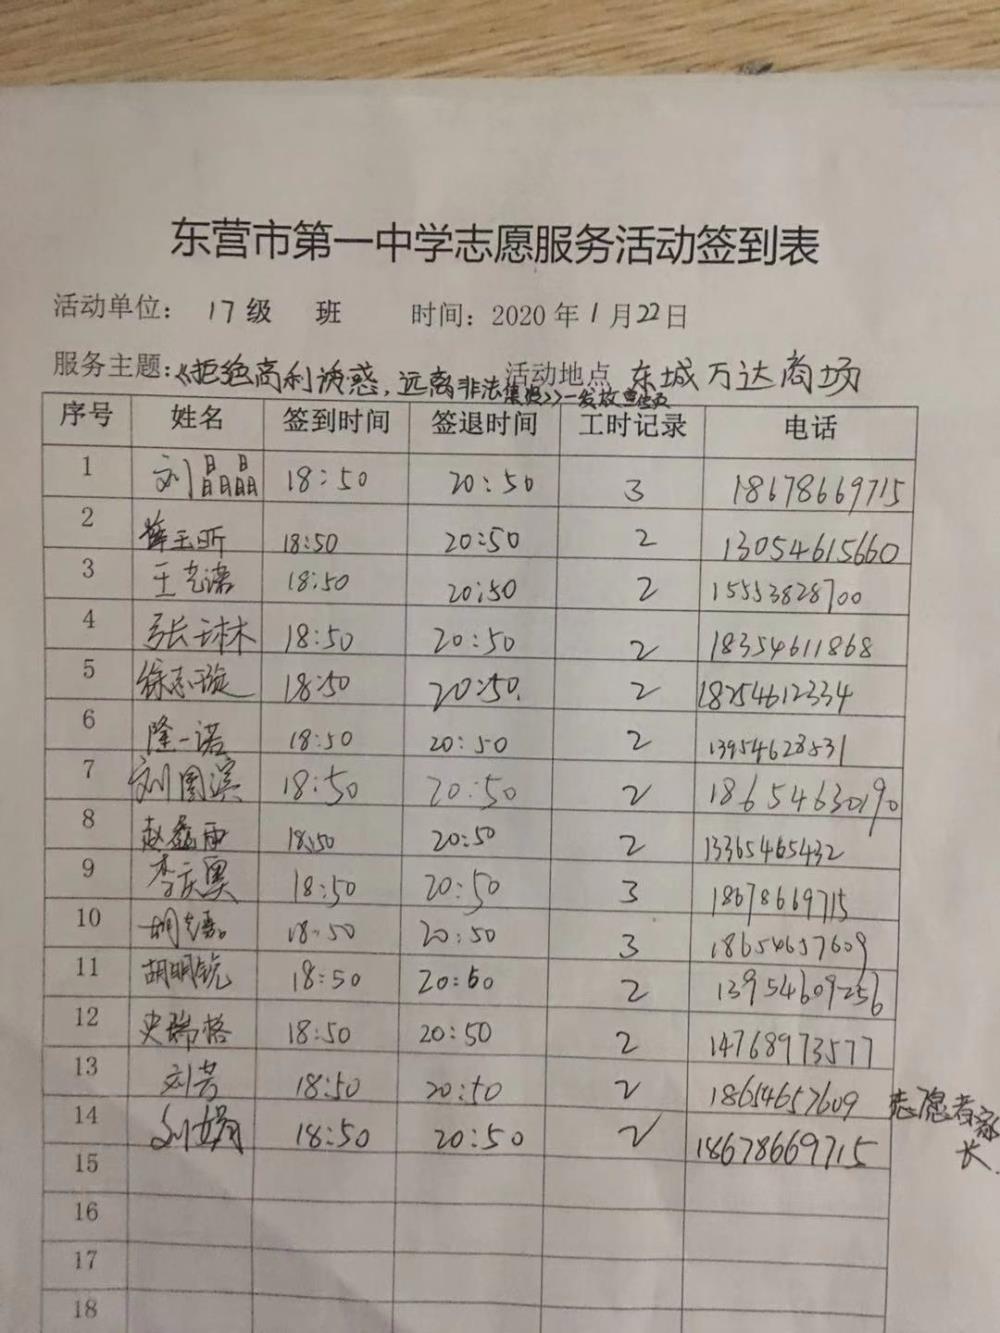 东营市第一中学志愿服务活动签到表
活动单位： 17级 班 时间：2020年1月22日
服务主题：《拒绝高利诱惑，远离非法集资》—发放宣传页 活动地点 东城万达商场
序号 姓名 签到时间 签退时间 工时记录 电话
1 刘晶晶 18:50 20:50 3 18678669715
2 薛玉昕 18:50 20:50 2 13054615660
3 王艺诺 18:50 20:50 2 15553828700
4 张琳 18:50 20:50 2 18354611868
5 徐志璇 18:50 20:50. 2 18254612334
6 隆一诺 18:50 20:50 2 13954628531
7 刘国滨 18:50 20:50 2 18654630190
8 赵鑫雨 18:50 20:50 2 13365465432
9 李庆奥 18:50 20:50 3 18678669715
10 胡 18:50 20:50 3 18654657609
11 胡明锐 18:50 20:50 2 13954609256
12 史瑞格 18:50 20:50 2 14768973577
13 刘芳 18:50 20:50 2 18654657609 志愿者部
14 刘娟 18:50 20:50 2 18678669715 长.
15
16
17
18